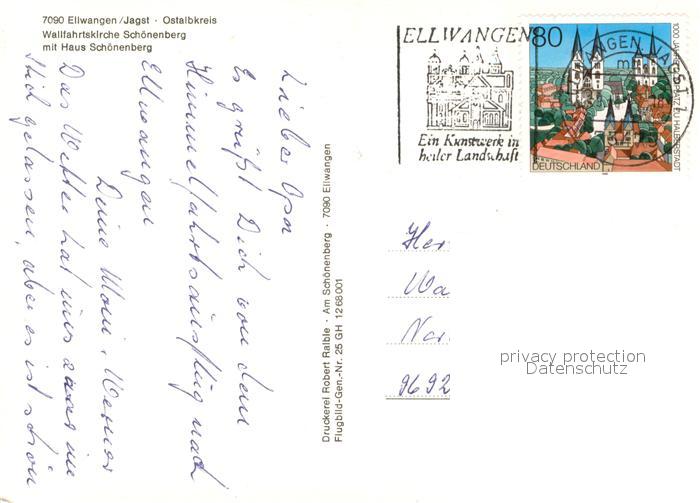 7090 Ellwangen/Jagst · Ostalbkreis
Wallfahrtskirche Schönenberg
mit Haus Schönenberg
Lieber Opa
Es grüßt Dich von dem
Himmelfahrtsausflug nach
Ellwangen
Deine Moni, Werner
Das Wetter hat uns zwar im
Stich gelassen, aber es ist schön
Druckerei Robert Raible · Am Schönenberg · 7090 Ellwangen
Flugbild-Gen.-Nr. 25 GH 1268001
ELLWANGEN
Ein Kunstwerk in
heiler Landschaft
80
1000 JAHRE DOMPLATZ ZU HALBERSTADT
DEUTSCHLAND
Her
Wa
Nor
9692
privacy protection
Datenschutz